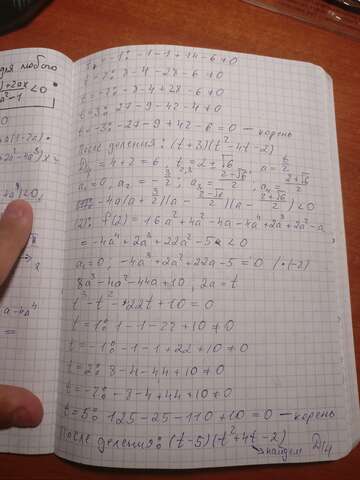 для любого
t=-1: -1-1+14-6≠0
t=2: 8-4-28-6≠0
t=-2: -8-4+28-6≠0
t=3: 27-9-42-6≠0
t=-3: -27-9+42-6=0 - корень
После деления: (t+3)(t²-4t-2)
=4+2=6, t=2±√6, a=t/2
a₁=0, a₂=-3/2, a₃=(2+√6)/2, a₄=(2-√6)/2
-4a(a+3/2)(a-(2+√6)/2)(a-(2-√6)/2)<0
(2): f(2)=16a²+4a²-4a-4a⁴+2a³+2a²-a
=-4a⁴+2a³+22a²-5a<0
a₁=0, -4a³+2a²+22a-5=0 |·(-2)
8a³-4a²-44a+10, 2a=t
t³-t²-22t+10=0
t=1: 1-1-22+10≠0
t=-1: -1-1+22+10≠0
t=2: 8-4-44+10≠0
t=-2: -8-4+44+10≠0
t=5: 125-25-110+10=0 - корень
После деления: (t-5)(t²+4t-2)
найдем D/4